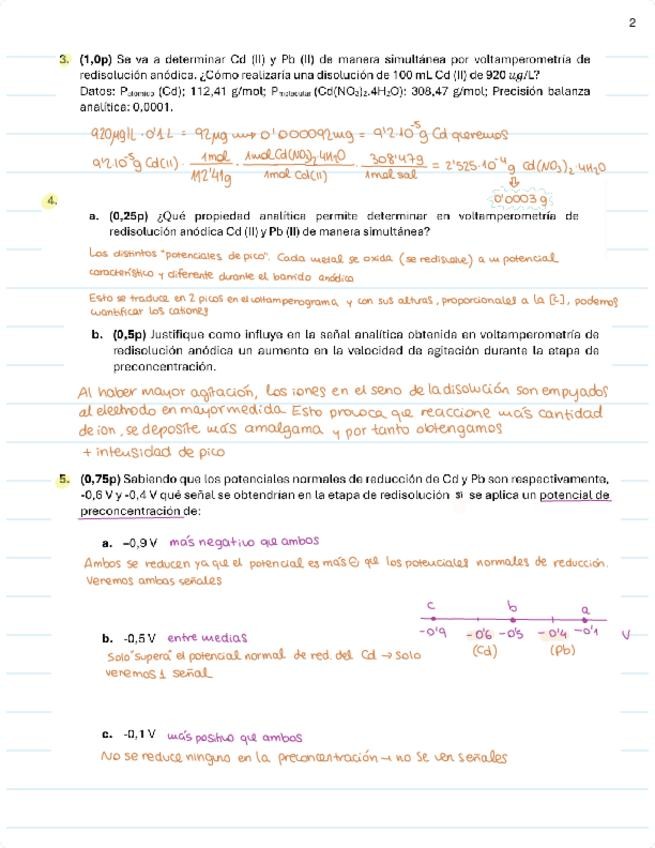 2
3. (1,0p) Se va a determinar Cd (II) y Pb (II) de manera simultánea por voltamperometría de
redisolución anódica. ¿Cómo realizaría una disolución de 100 mL Cd (II) de 920 µg/L?
Datos: Patomico (Cd); 112,41 g/mol; Pmolecular (Cd(NO3)2.4H2O): 308,47 g/mol; Precisión balanza
analítica: 0,0001.
920µg/L · 0'1 L = 92µg → 0'000092mg = 9'2·10⁻⁵ g Cd queremos
9'2·10⁻⁵ g Cd(II) · 1mol / 112'41g · 1mol Cd(NO3)2 4H2O / 1mol Cd(II) · 308'47g / 1mol sal = 2'525·10⁻⁴ g Cd(NO3)2·4H2O
⇓
0'0003 g
4.
a. (0,25p) ¿Qué propiedad analítica permite determinar en voltamperometría de
redisolución anódica Cd (II) y Pb (II) de manera simultánea?
Los distintos "potenciales de pico". Cada metal se oxida (se redisuelve) a un potencial
característico y diferente durante el barrido anódico
Esto se traduce en 2 picos en el voltamperograma y con sus alturas, proporcionales a la [C], podemos
cuantificar los cationes
b. (0,5p) Justifique como influye en la señal analítica obtenida en voltamperometría de
redisolución anódica un aumento en la velocidad de agitación durante la etapa de
preconcentración.
Al haber mayor agitación, los iones en el seno de la disolución son empujados
al electrodo en mayor medida. Esto provoca que reaccione más cantidad
de ion, se deposite más amalgama y por tanto obtengamos
+ intensidad de pico
5. (0,75p) Sabiendo que los potenciales normales de reducción de Cd y Pb son respectivamente,
-0,6 V y -0,4 V qué señal se obtendrían en la etapa de redisolución si se aplica un potencial de
preconcentración de:
a. –0,9 V más negativo que ambos
Ambos se reducen ya que el potencial es más ⊖ que los potenciales normales de reducción.
Veremos ambas señales
c b a
-0'9 -0'6 -0'5 -0'4 -0'1 V
(Cd) (Pb)
b. -0,5 V entre medias
Solo "supera" el potencial normal de red. del Cd → Solo
veremos 1 señal
c. -0,1 V más positivo que ambos
No se reduce ninguno en la preconcentración → no se ven señales